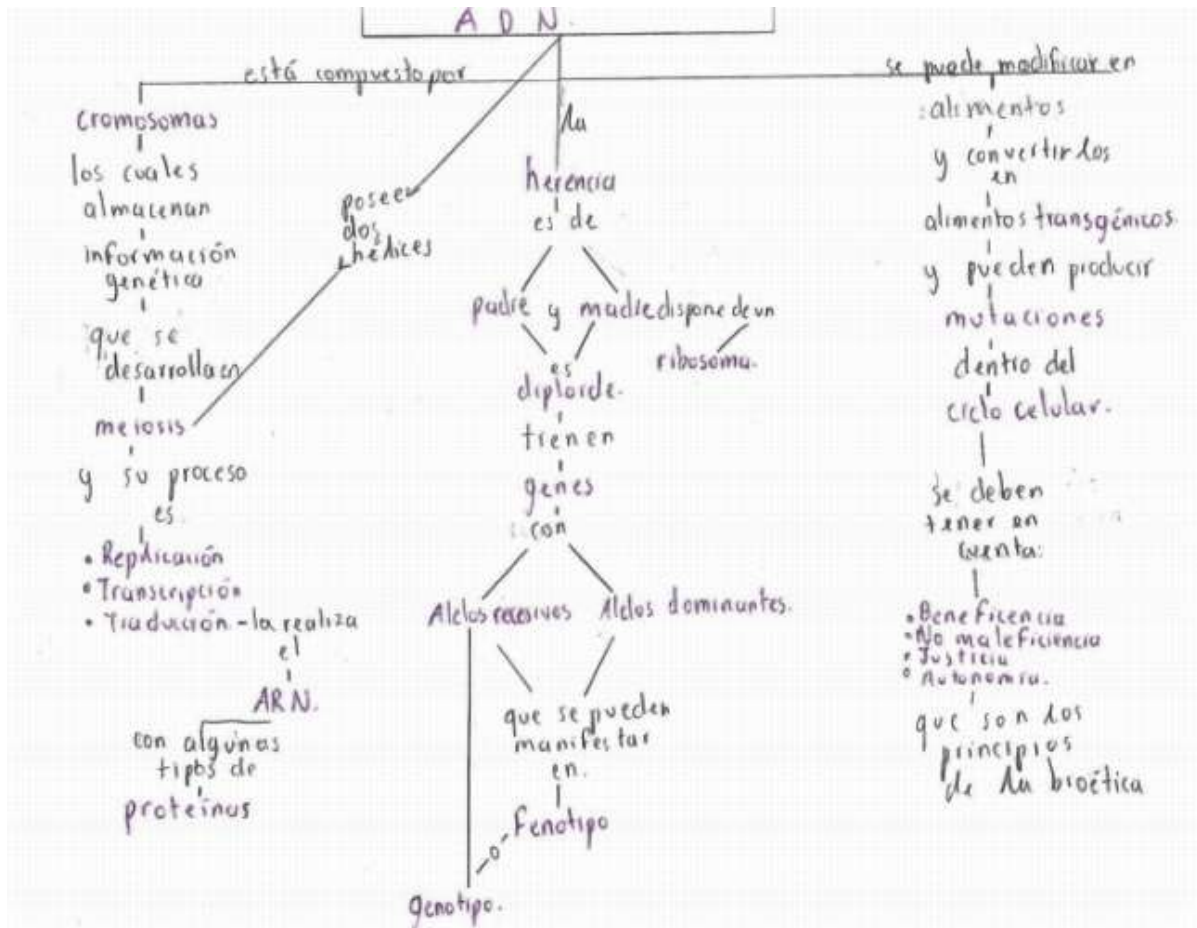 ADN.
está compuesto por
cromosomas
los cuales
almacenan
información
genética
que se
desarrolla en
meiosis
y su proceso
es
• Replicación
• Transcripción
• Traducción - la realiza
el
ARN.
con algunos
tipos de
proteínas
posee
dos
hélices
la
herencia
es de
padre y madre dispone de un
ribosoma.
es
diploide.
tienen
genes
con
Alelos recesivos Alelos dominantes.
que se pueden
manifestar
en.
Fenotipo
o
genotipo.
se puede modificar en
alimentos
y convertirlos
en
alimentos transgénicos.
y pueden producir
mutaciones
dentro del
ciclo celular.
se deben
tener en
cuenta:
• Beneficencia
• No maleficiencia
• Justicia
• Autonomía.
que son los
principios
de la bioética